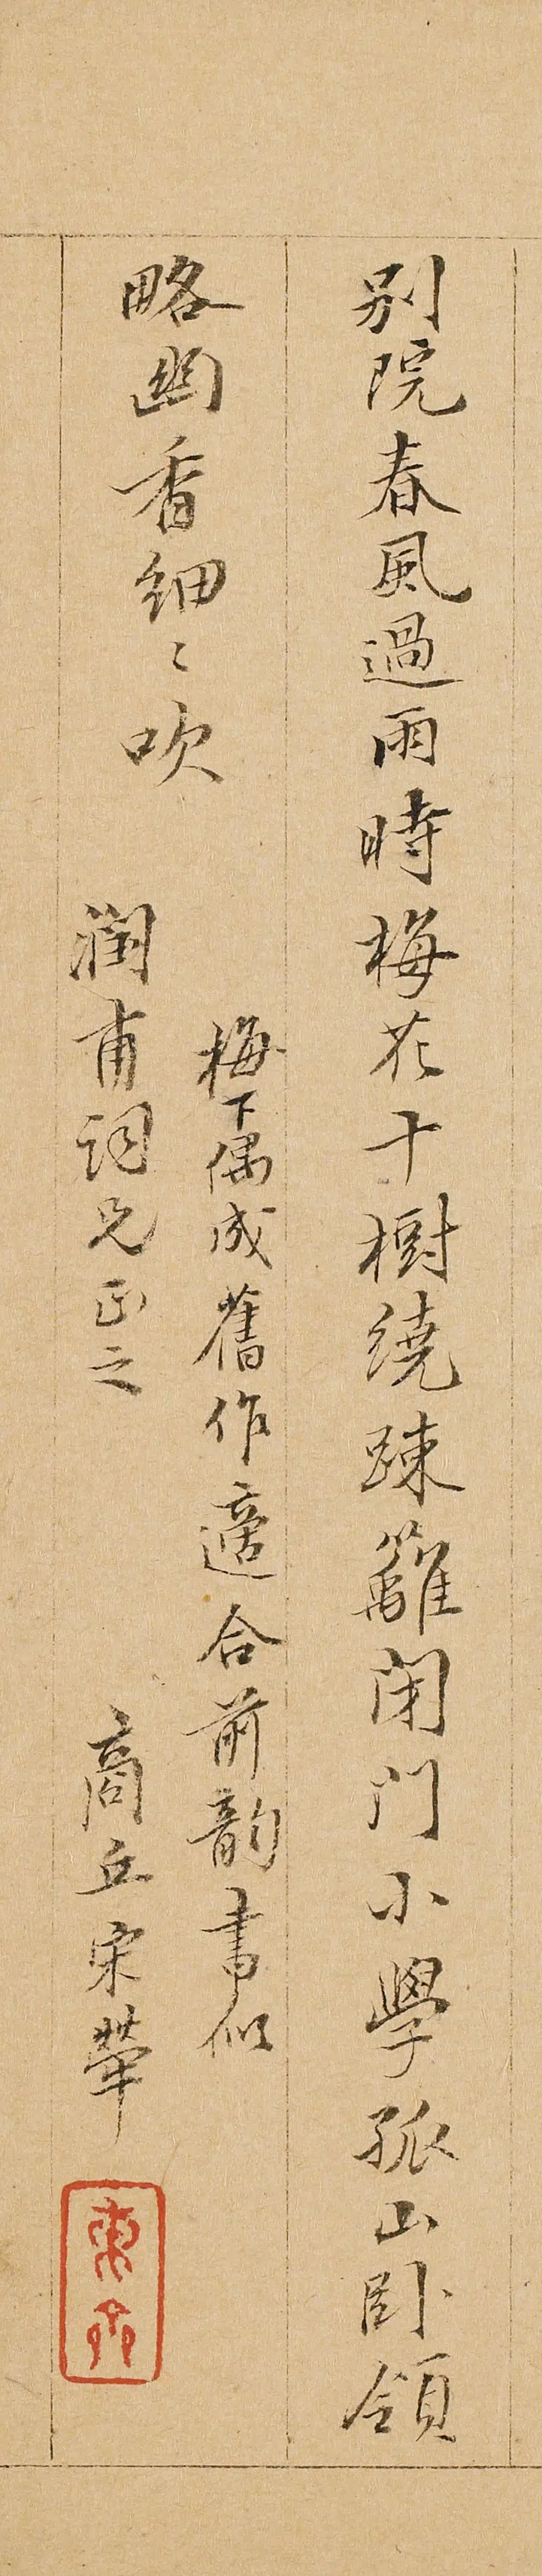 別院春風過雨時梅花十樹繞踈籬閉門小學孤山卧領
略幽香細〻吹
梅下偶成舊作適合前韵書似
潤甫詞兄正之
商丘宋犖